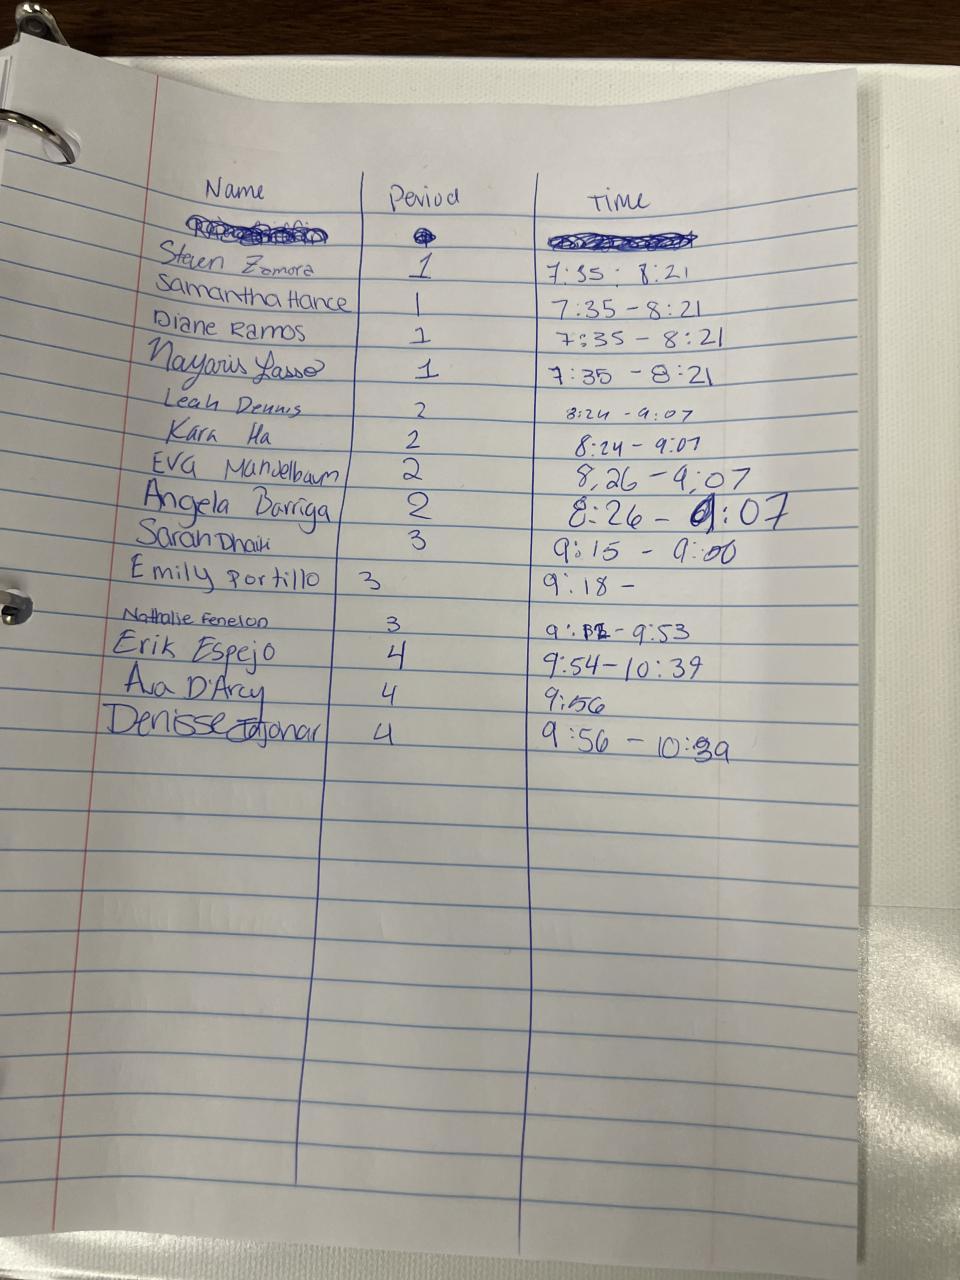 Name Period Time
Steven Zamora 1 7:35 : 8:21
Samantha Hance 1 7:35 - 8:21
Diane Ramos 1 7:35 - 8:21
Nayaris Lasso 1 7:35 - 8:21
Leah Dennis 2 8:24 - 9:07
Kara Ha 2 8:24 - 9:07
EVA Mandelbaum 2 8,26 - 9,07
Angela Barriga 2 8:26 - 9:07
Sarah 3 9:15 - 9:00
Emily Portillo 3 9:18 -
Nathalie Fenelon 3 - 9:53
Erik Espejo 4 9:54 - 10:39
Ava D'Arcy 4 9:56
Denisse 4 9:56 - 10:39